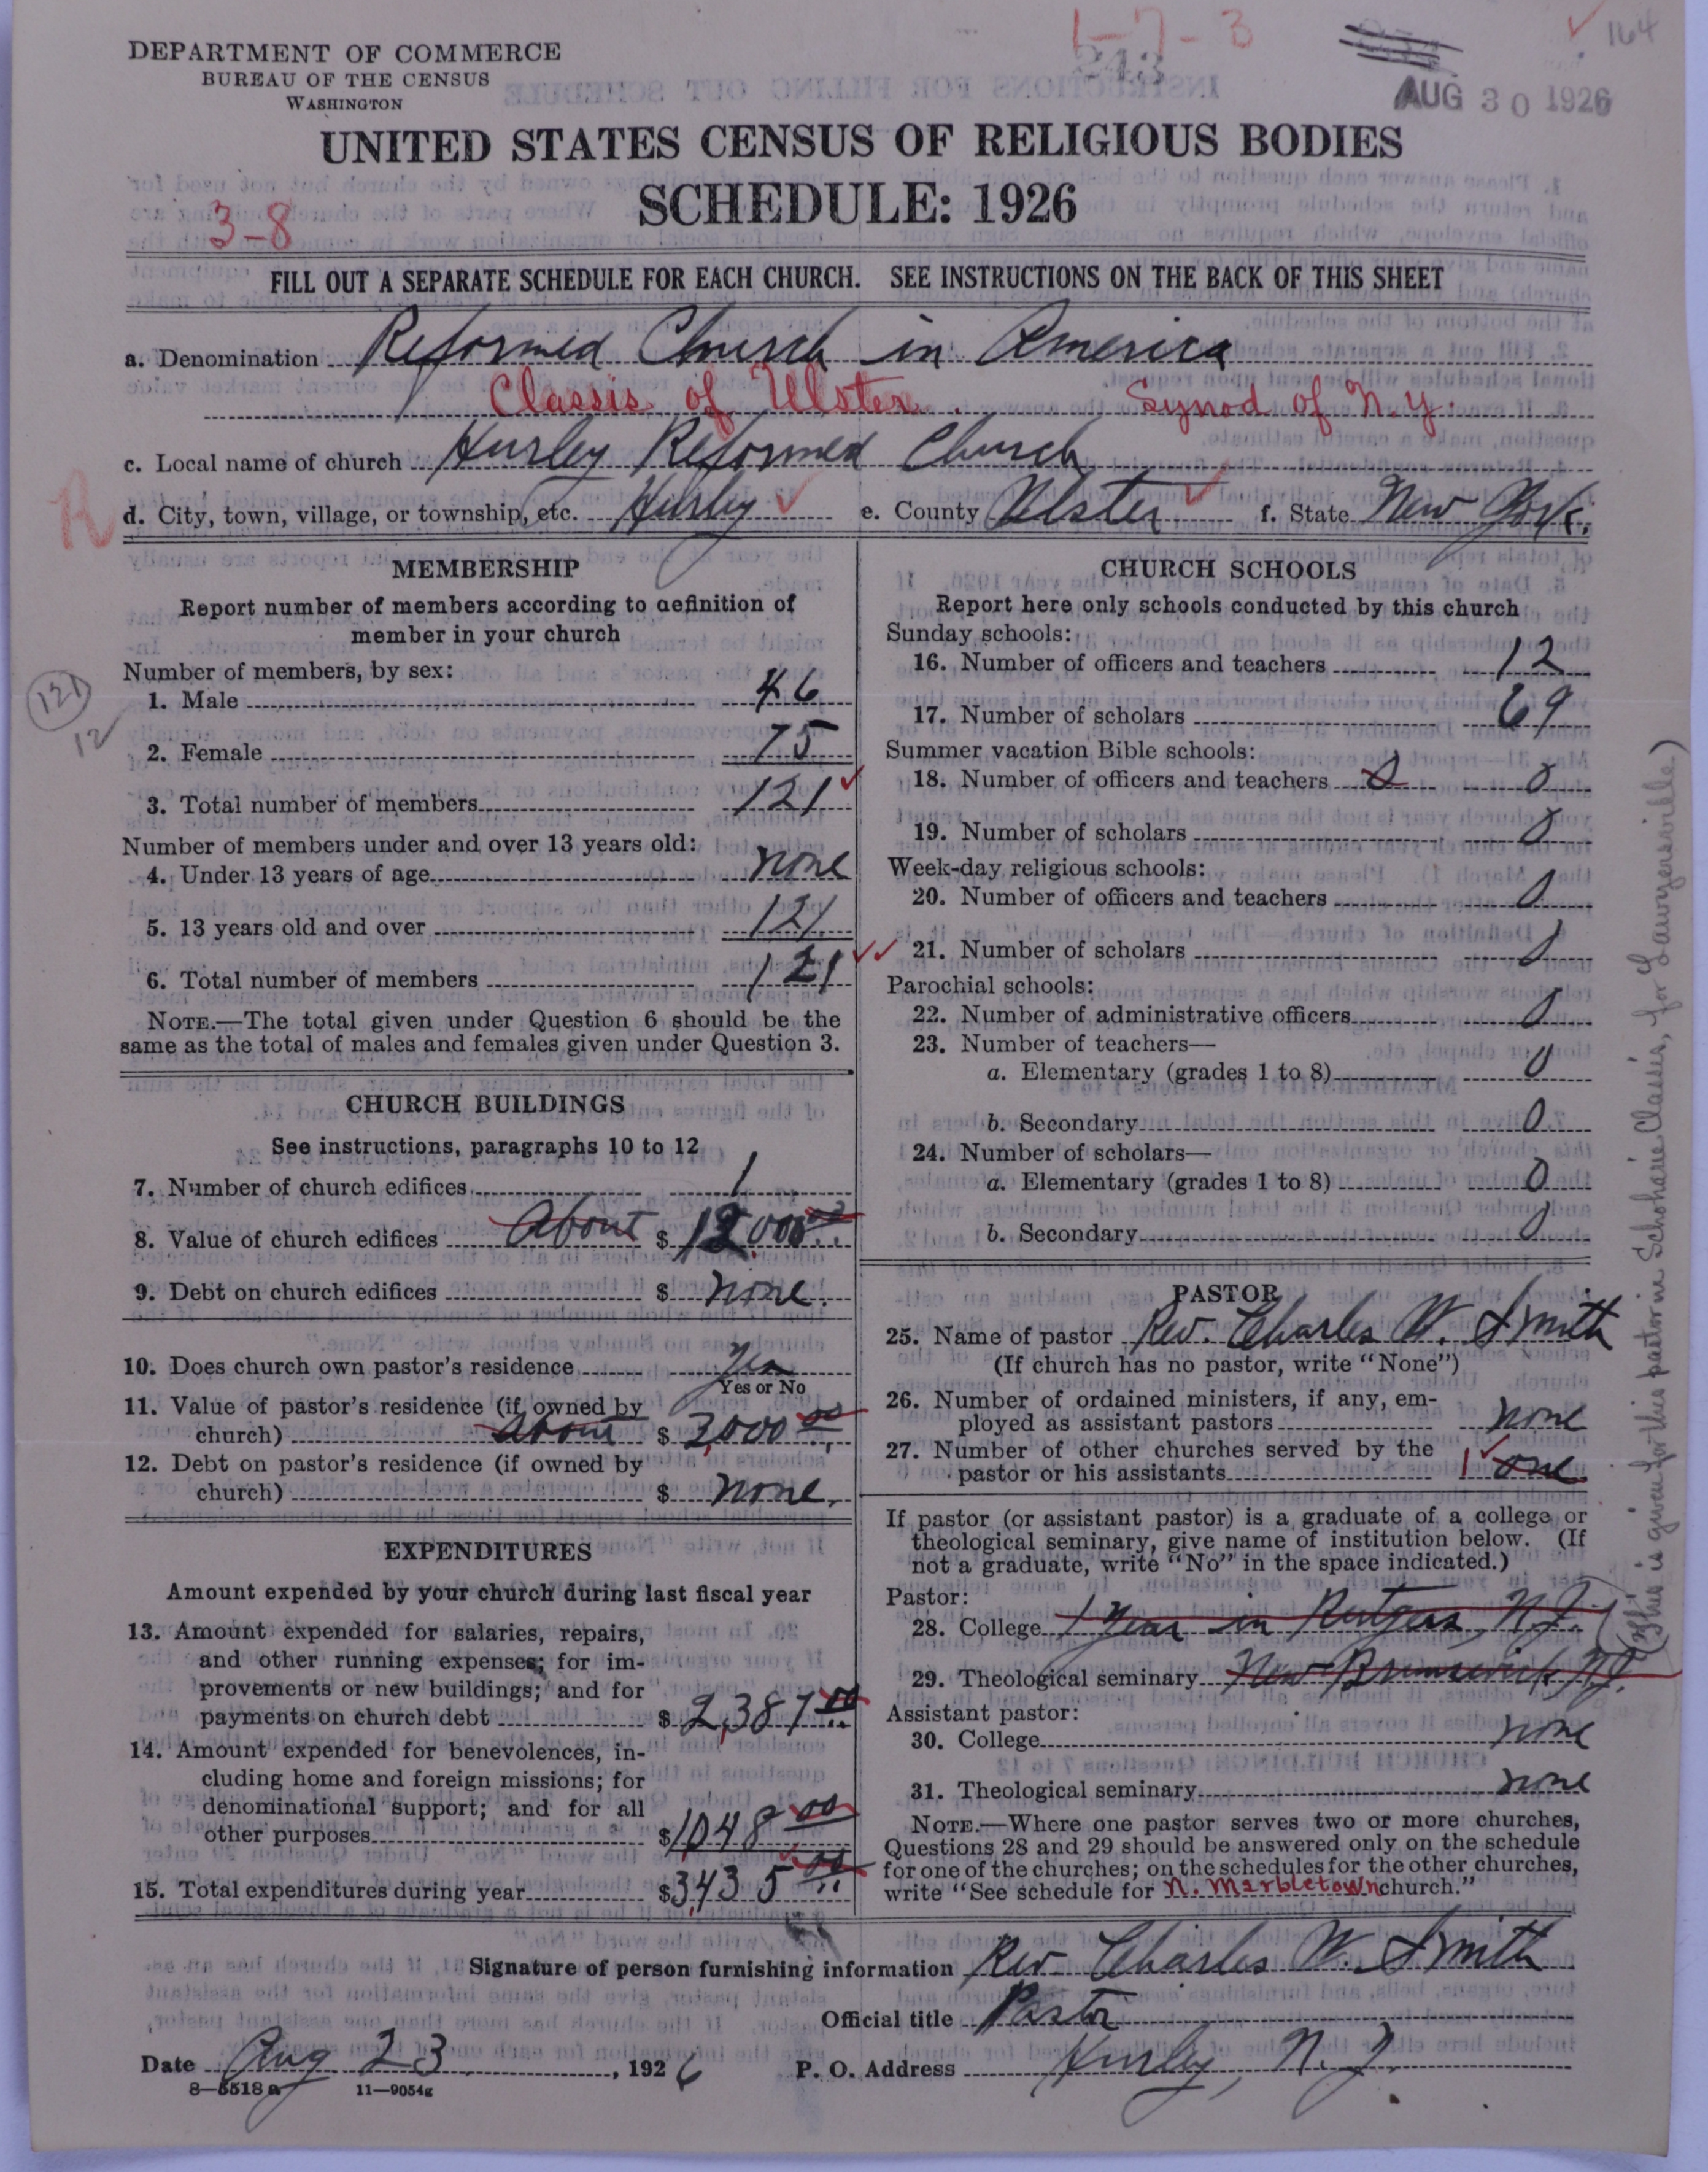 1-7-3
164
243
DEPARTMENT OF COMMERCE
BUREAU OF THE CENSUS
WASHINGTON
AUG 30 1926
UNITED STATES CENSUS OF RELIGIOUS BODIES
SCHEDULE: 1926
3-8
FILL OUT A SEPARATE SCHEDULE FOR EACH CHURCH. SEE INSTRUCTIONS ON THE BACK OF THIS SHEET
a. Denomination Reformed Church in America
Classis of Ulster. Synod of N.Y.
c. Local name of church Hurley Reformed Church
R
d. City, town, village, or township, etc. Hurley e. County Ulster f. State New York.
MEMBERSHIP
Report number of members according to definition of
member in your church
Number of members, by sex:
121
12
1. Male 46
2. Female 75
3. Total number of members 121
Number of members under and over 13 years old:
4. Under 13 years of age none
5. 13 years old and over 121
6. Total number of members 121
NOTE.—The total given under Question 6 should be the
same as the total of males and females given under Question 3.
CHURCH BUILDINGS
See instructions, paragraphs 10 to 12
7. Number of church edifices 1
8. Value of church edifices About $ 12,000 00
9. Debt on church edifices $ none.
10. Does church own pastor's residence Yes
Yes or No
11. Value of pastor's residence (if owned by
church) About $ 3,000 00
12. Debt on pastor's residence (if owned by
church) $ none.
EXPENDITURES
Amount expended by your church during last fiscal year
13. Amount expended for salaries, repairs,
and other running expenses; for im-
provements or new buildings; and for
payments on church debt $ 2,387 00
14. Amount expended for benevolences, in-
cluding home and foreign missions; for
denominational support; and for all
other purposes $ 1,048 00
15. Total expenditures during year $ 3,435 00
CHURCH SCHOOLS
Report here only schools conducted by this church
Sunday schools:
16. Number of officers and teachers 12
17. Number of scholars 69
Summer vacation Bible schools:
18. Number of officers and teachers 0 0
19. Number of scholars 0
Week-day religious schools:
20. Number of officers and teachers 0
21. Number of scholars 0
Parochial schools:
22. Number of administrative officers 0
23. Number of teachers—
a. Elementary (grades 1 to 8) 0
b. Secondary 0
24. Number of scholars—
a. Elementary (grades 1 to 8) 0
b. Secondary 0
PASTOR
25. Name of pastor Rev. Charles W. Smith
(If church has no pastor, write "None")
26. Number of ordained ministers, if any, em-
ployed as assistant pastors none
27. Number of other churches served by the
pastor or his assistants 1 one
If pastor (or assistant pastor) is a graduate of a college or
theological seminary, give name of institution below. (If
not a graduate, write "No" in the space indicated.)
Pastor:
28. College 1 year in Rutgers, N.J.
29. Theological seminary New Brunswick N.J.
Assistant pastor:
30. College none
31. Theological seminary none
NOTE.—Where one pastor serves two or more churches,
Questions 28 and 29 should be answered only on the schedule
for one of the churches; on the schedules for the other churches,
write "See schedule for N. Marbletown church."
(This is given for this pastor in Schoharie Classis, for Lawyersville)
Signature of person furnishing information Rev. Charles W. Smith
Official title Pastor
Date Aug 23, 1926 P. O. Address Hurley, N.Y.
8—5518 a 11—9054g